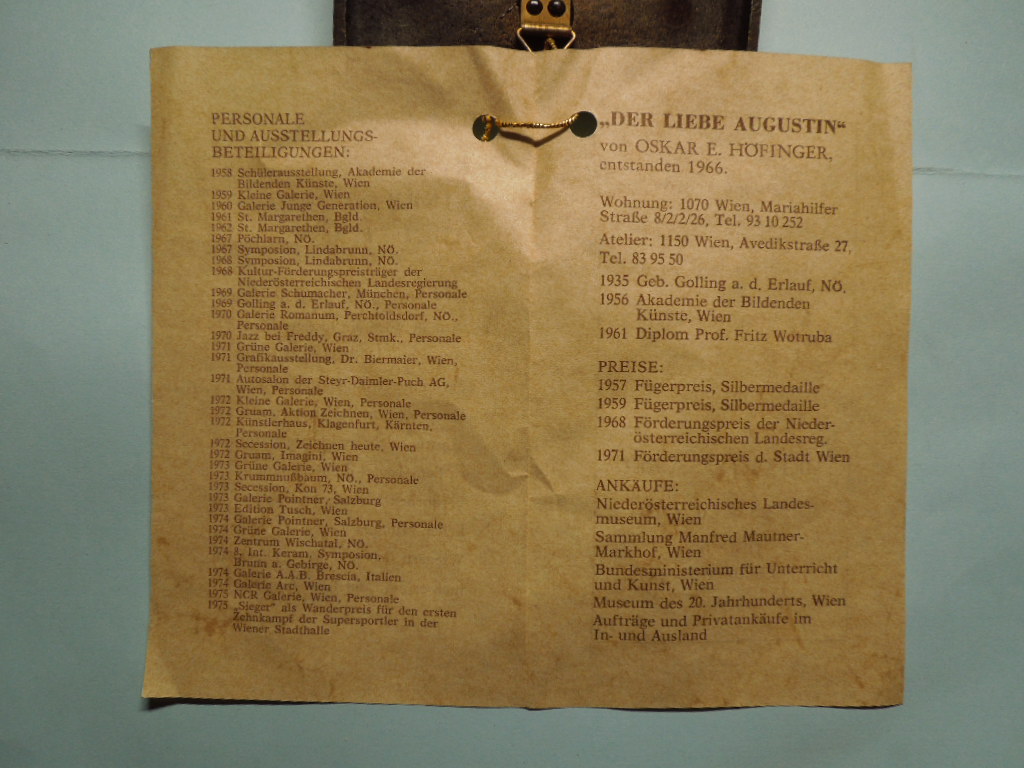 PERSONALE
UND AUSSTELLUNGS-
BETEILIGUNGEN:
1958 Schülerausstellung, Akademie der
Bildenden Künste, Wien
1959 Kleine Galerie, Wien
1960 Galerie Junge Generation, Wien
1961 St. Margarethen, Bgld.
1962 St. Margarethen, Bgld.
1967 Pöchlarn, NÖ.
1967 Symposion, Lindabrunn, NÖ.
1968 Symposion, Lindabrunn, NÖ.
1968 Kultur-Förderungspreisträger der
Niederösterreichischen Landesregierung
1969 Galerie Schumacher, München, Personale
1969 Golling a. d. Erlauf, NÖ., Personale
1970 Galerie Romanum, Perchtoldsdorf, NÖ.,
Personale
1970 Jazz bei Freddy, Graz, Stmk., Personale
1971 Grüne Galerie, Wien
1971 Grafikausstellung, Dr. Biermaier, Wien,
Personale
1971 Autosalon der Steyr-Daimler-Puch AG,
Wien, Personale
1972 Kleine Galerie, Wien, Personale
1972 Gruam, Aktion Zeichnen, Wien, Personale
1972 Künstlerhaus, Klagenfurt, Kärnten,
Personale
1972 Secession, Zeichnen heute, Wien
1972 Gruam, Imagini, Wien
1973 Grüne Galerie, Wien
1973 Krummnußbaum, NÖ., Personale
1973 Secession, Kon 73, Wien
1973 Galerie Pointner, Salzburg
1973 Edition Tusch, Wien
1974 Galerie Pointner, Salzburg, Personale
1974 Grüne Galerie, Wien
1974 Zentrum Wischatal, NÖ.
1974 8. Int. Keram. Symposion,
Brunn a. Gebirge, NÖ.
1974 Galerie A.A.B. Brescia, Italien
1974 Galerie Arc, Wien
1975 NCR Galerie, Wien, Personale
1975 „Sieger" als Wanderpreis für den ersten
Zehnkampf der Supersportler in der
Wiener Stadthalle
„DER LIEBE AUGUSTIN"
von OSKAR E. HÖFINGER,
entstanden 1966.
Wohnung: 1070 Wien, Mariahilfer
Straße 8/2/2/26, Tel. 93 10 252
Atelier: 1150 Wien, Avedikstraße 27,
Tel. 83 95 50
1935 Geb. Golling a. d. Erlauf, NÖ.
1956 Akademie der Bildenden
Künste, Wien
1961 Diplom Prof. Fritz Wotruba
PREISE:
1957 Fügerpreis, Silbermedaille
1959 Fügerpreis, Silbermedaille
1968 Förderungspreis der Nieder-
österreichischen Landesreg.
1971 Förderungspreis d. Stadt Wien
ANKÄUFE:
Niederösterreichisches Landes-
museum, Wien
Sammlung Manfred Mautner-
Markhof, Wien
Bundesministerium für Unterricht
und Kunst, Wien
Museum des 20. Jahrhunderts, Wien
Aufträge und Privatankäufe im
In- und Ausland